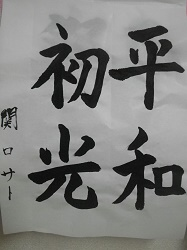 平和
初光
関口サト